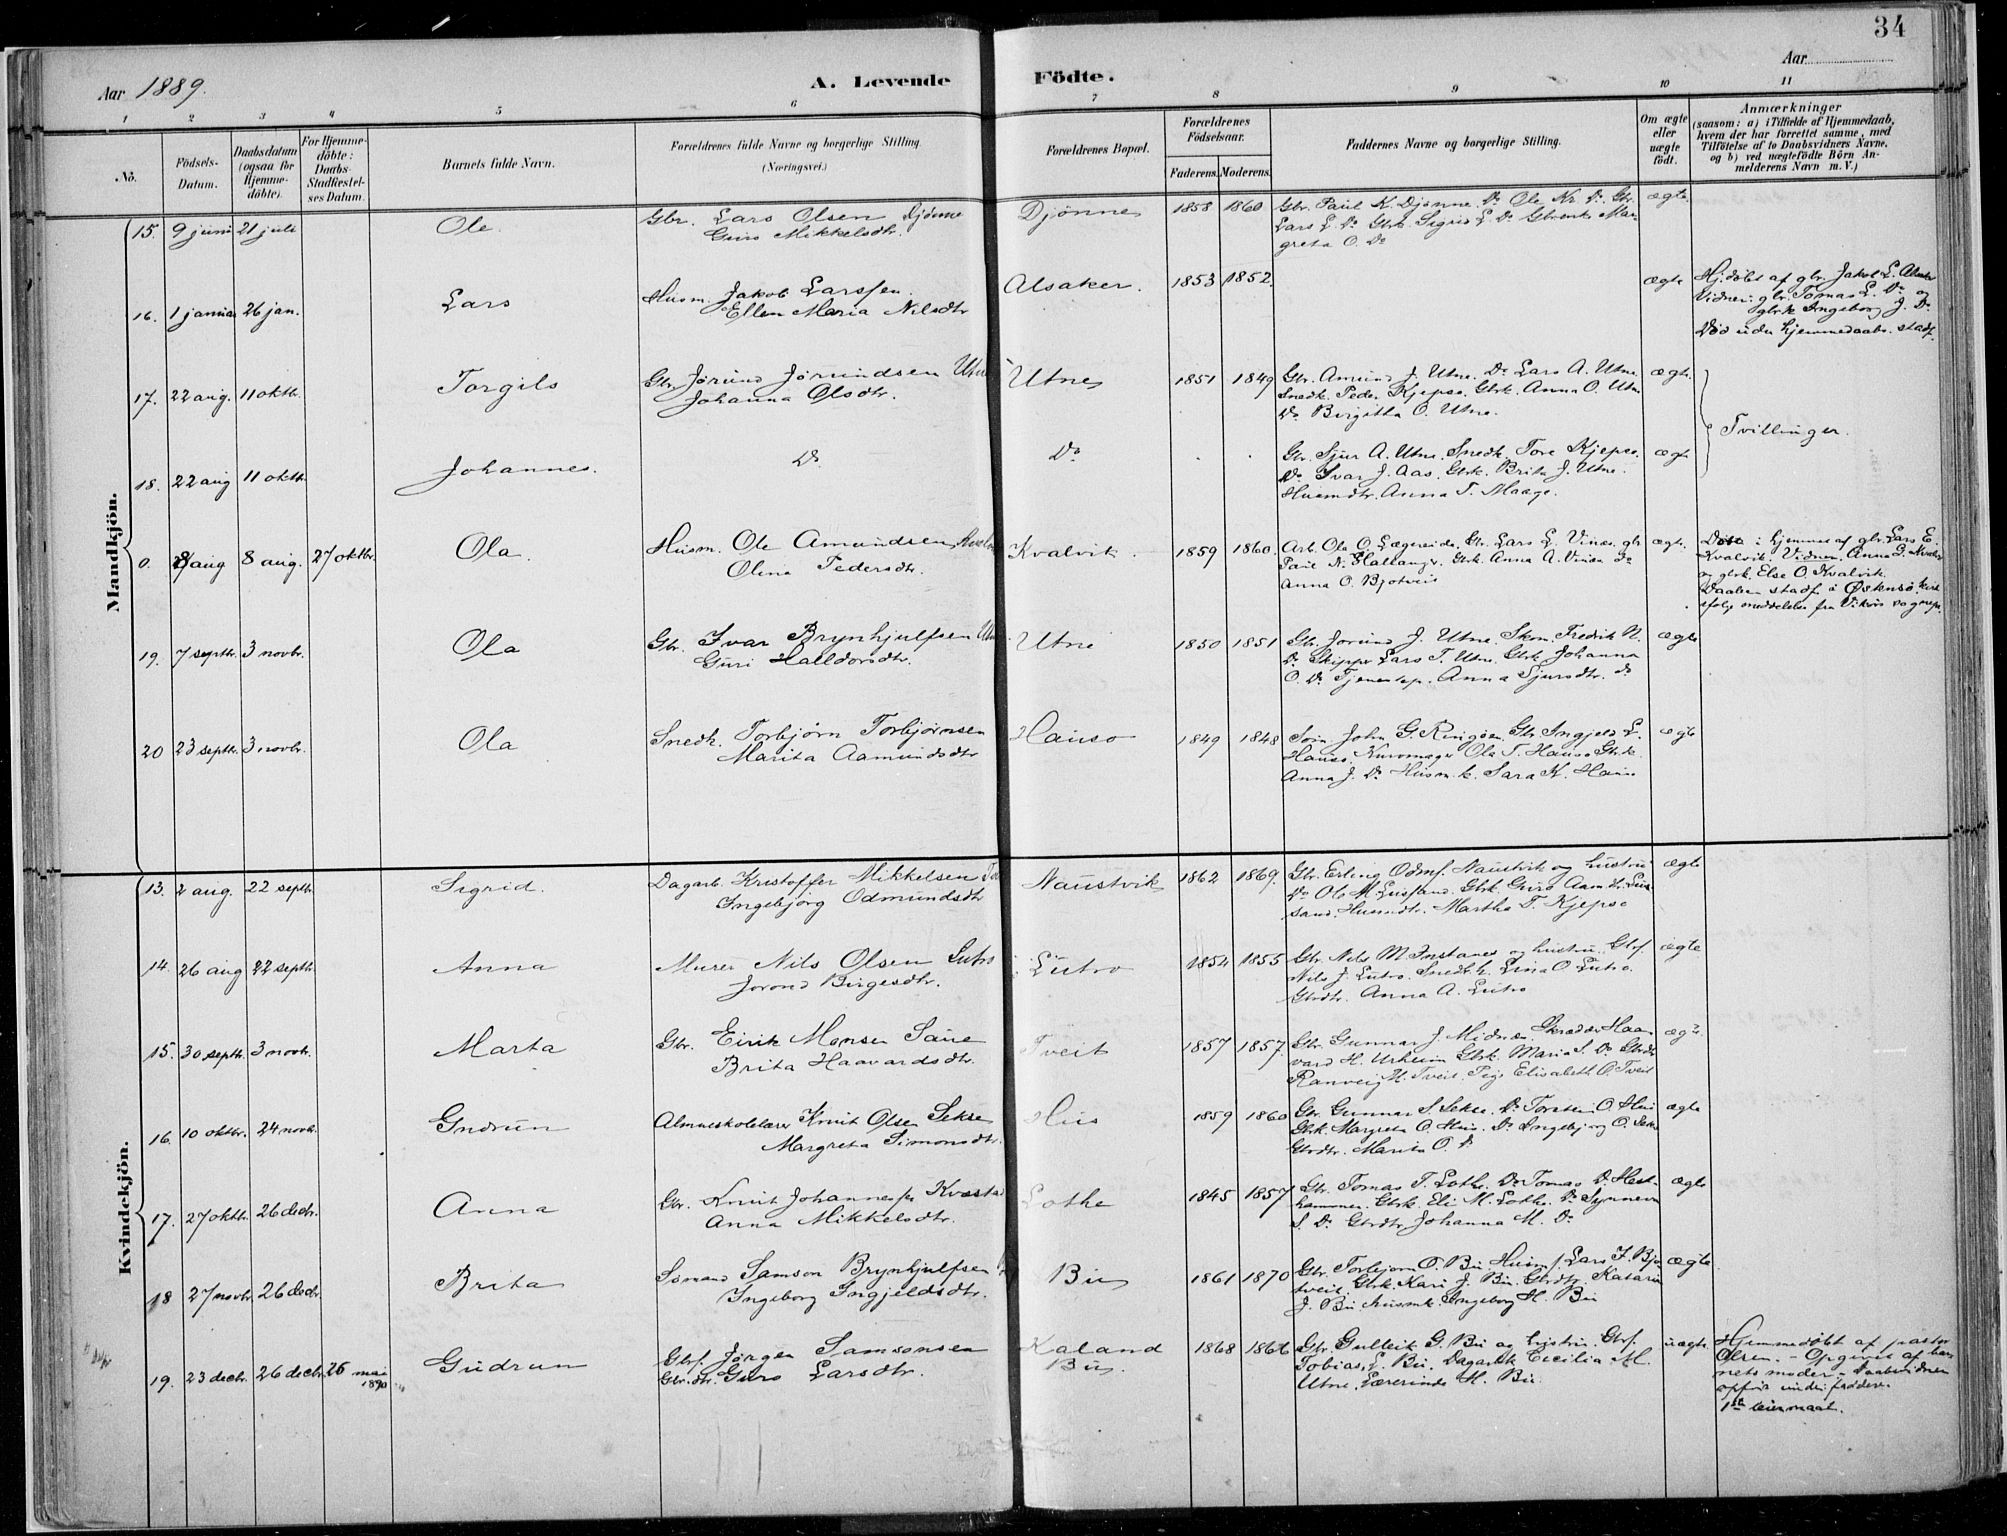 34
Aar 1889.
A. Levende Födte.
Aar
1 2 3 4 5 6 7 8 9 10 11
No.
Födsels-Datum.
Daabsdatum (ogsaa for Hjemme-döbte).
For Hjemme-döbte: Daabs-Stadfæstel-ses Datum.
Barnets fulde Navn.
Forældrenes fulde Navne og borgerlige Stilling. (Næringsvei.)
Forældrenes Bopæl.
Forældrenes Födselsaar.
Faderens. Moderens.
Faddernes Navne og borgerlige Stilling.
Om ægte eller uægte födt.
Anmærkninger (saasom: a) i Tilfælde af Hjemmedaab, hvem der har forrettet samme, med Tilföielse af to Daabsvidners Navne, og b) ved uægtefödte Börn An-melderens Navn m. V.)
Mandkjön.
15. 9 juni 21 juli Ole Gbr. Lars Olsen Djønne Djønne 1858 1860 Gbr. Paul K. Djønne. Do Ole Kr. Do. Gbr. ægte
Guro Mikkelsdtr. Lars L. Do Gbrk. Sigrid L. Do Gbrenk. Mar
greta O. Do
16. 1 januar 26 jan. Lars Husm. Jakob Larssen Alsaker. 1853 1852 ægte Hjdöbt af gbr. Jakob L. Alsaker
Ellen Maria Nilsdtr Vidner: gbr. Tomas L. Do og
gbrk Ingeborg J. Do
Död uden hjemmedaabs. stadf.
17. 22 aug. 11 oktbr. Torgils Gbr. Jørund Jørundsen Utne Utne 1851 1849 Gbr. Amund J. Utne. Do Lars A. Utne. ægte.
Johanna Olsdtr. Snedk. Peder Kjepso. Gbrk. Anna O. Utne
Do Birgitta O. Utne.
Tvillinger.
18. 22 aug 11 oktbr. Johannes. Do Do Gbr. Sjur A. Utne. Snedk. Tore Kjepso. ægte
Do Ivar J. Aas. Gbrk. Brita J. Utne.
Husmdtr. Anna T. Maage.
0. 8 aug 8 aug. 27 oktbr. Ola. Husm. Ole Amundsen Kvalvik Kvalvik 1859 1860. Arb. Ole O. Lægreid. Gbr. Lars L. Vines. gbr ægte. i hjemmet af gbr. Lars E.
Olina Pedersdtr. Paul N. Hallanger. Gbrk. Anna A. Vines Do Kvalvik. Vidner Anna
Anna O. Bjotveit og gbrk. Else O. Kvalvik.
Daaben stadf. i Østensö kirke
ifölge meddelelse fra Vikörs sognepr.
19. 7 septbr. 3 novbr. Ola Gbr. Ivar Brynhjulfsen Utne Utne 1850 1851 Gbr. Jorund J. Utne. Skom. Fredrik N. ægte
Guri Halldorsdtr. Do Skipper Lars T. Utne. Gbrk Johanna
O. Do. Tjenestep. Anna Sjursdtr. do
20 23 septbr. 3 novbr. Ola Snedk. Torbjørn Torbjørnsen Hauso 1849 1848 John G. Ringøen Gbr Ingjeld L. ægte
Marita Aamundsdtr Hauso. Ola T. Hauso Gbrk.
Anna J. Do Husm.k. Sara K. Hauso
Kvindekjön.
13. 2 aug. 22 septbr. Sigrid. Dagarb. Kristoffer Mikkelsen Naustvik 1862 1869. Gbr. Erling Odmf. Naustvik og hustru ægte
Ingebjørg Odmundsdtr Do Ole M. Gbrk. Guro
sand. Husmdtr. Martha T. Kjepso
14. 26 aug 22 septbr. Anna Murer Nils Olsen Lutro Lutro 1854 1855 Gbr. Nils M. Instanes og hustru. Gbrf. ægte
Jorond Birgesdtr. Nils J. Lutro. Snedk.k. Lina O Lutro.
Gbrdtr. Anna A. Lutro
15. 30 septbr. 3 novbr. Marta Gbr. Eirik Monsen Saue Tveit 1857 1857. Gbr. Gunnar J. Midnæs. Skrædder Haa- ægte
Brita Haavardsdtr. vard H. Urheim Gbrk. Maria S. Do Gbrdtr
Ranveig M. Tveit. Pige Elisabeth O. Tveit
16. 10 oktbr. 24 novbr. Gudrun Almueskolelærer Knut Olsen Sekse Hus 1859 1860 Gbr. Gunnar S. Sekse. Do Torstein O. Hus ægte
Margreta Simonsdtr. Gbrk. Margreta O. Hus. Do Ingebjørg O. Sekse
Gbrdtr. Marita O. Do
17. 27 oktbr. 26 decbr. Anna Gbr. Knut Johannessen Kvæstad Lothe 1845 1857 Gbr. Tomas T. Lothe. Do Tomas D. Hest- ægte
Anna Mikkelsdtr. hammer. Gbrk. Eli M. Lothe. Do Synneva
S. Do. Gbrdtr. Johanna M. Do
18 27 novbr. 26 decbr. Brita Sømand Samson Brynhjulfsen Bu 1861 1870 Gbr. Torbjørn O. Bu Husmf. Lars I. Bjo- ægte
Ingeborg Ingjeldsdtr. tveit. Gbrk. Kari J. Bu. Gbrdtr. Katarina
J. Bu. husmk. Ingeborg H. Bu
19. 23 decbr. 26 decbr. 26 mai 1890 Gudrun Gbrf. Jørgen Samsonsen Kaland 1868 1866 Gbr. Gulleik G. Bu og hustru. Gbrf. uægte Hjemmedöbt af pastor
Gbr.dtr. Guro Larsdtr. Bu. Tobias L. Bu. Dagarbk Cecilia M. Olsen. – Opgivet af bar
Utne. Lærerinde M. Bu. nets moder. – Daabsvidner
opför under faddere.
1ste leiermaal.